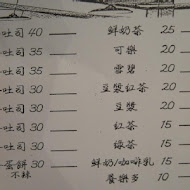 吐司 40 鮮奶茶 25
吐司 35 可樂 20
吐司 35 雪碧 20
吐司 30 豆漿紅茶 20
吐司 30 豆漿 20
吐司 30 紅茶 15
吐司 30 綠茶 15
蛋餅 30 鮮奶/咖啡乳 15
不辣 養樂多 10